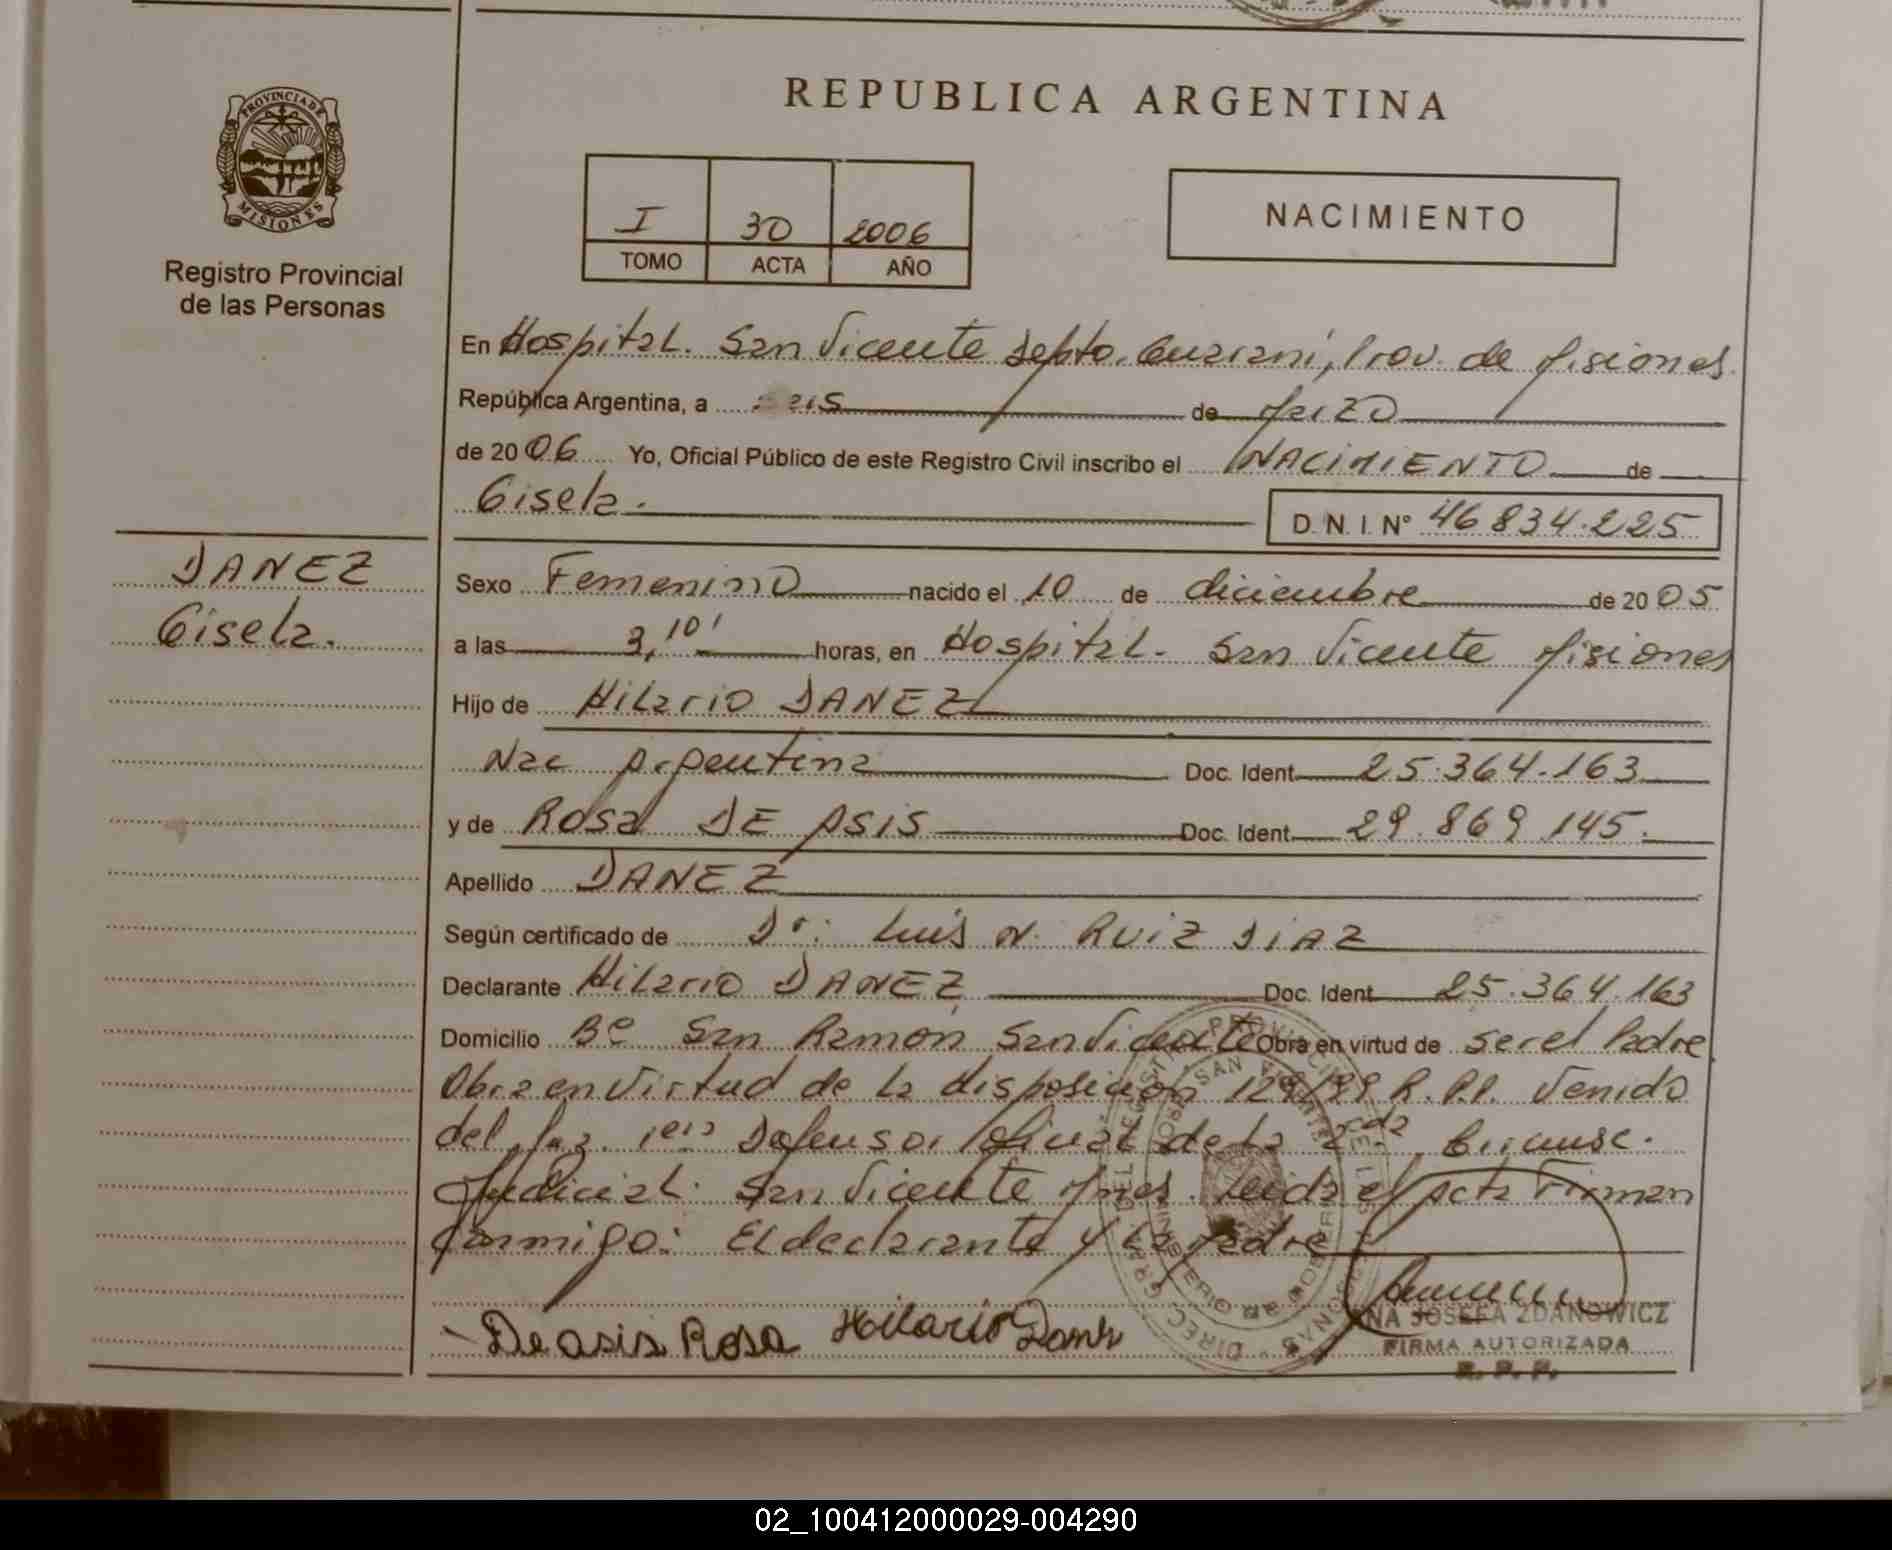 REPUBLICA ARGENTINA
PROVINCIA DE
MISIONES
Registro Provincial
de las Personas
I 30 2006
TOMO ACTA AÑO
NACIMIENTO
En Hospital. San Vicente Depto. Guarani, Prov. de Misiones.
República Argentina, a seis de Marzo
de 2006 Yo, Oficial Público de este Registro Civil inscribo el NACIMIENTO de
Gisela.
D. N. I. N° 46 834.225
DANEZ
Gisela.
Sexo Femenino nacido el 10 de diciembre de 2005
a las 3,10' horas, en Hospital. San Vicente Misiones
Hijo de Hilario DANEZ
Nac Argentina Doc. Ident 25.364.163
y de Rosa DE ASIS Doc. Ident. 29.869.145.
Apellido DANEZ
Según certificado de Dr: Luis N. RUIZ DIAZ
Declarante Hilario DANEZ Doc. Ident 25.364.163
Domicilio Bº San Ramon San Vicente Obra en virtud de ser el Padre.
Obra en Virtud de la disposicion 129/99 R.P.P. Venido
del Defensor Oficial de la 2da Circunsc.
Judicial. San Vicente Mnes. Leida el Acta Firman
Conmigo: El declarante y la Madre
De asis Rosa Hilario Danez
JOSEFA ZDANOWICZ
FIRMA AUTORIZADA
R. P. P.
02_100412000029-004290